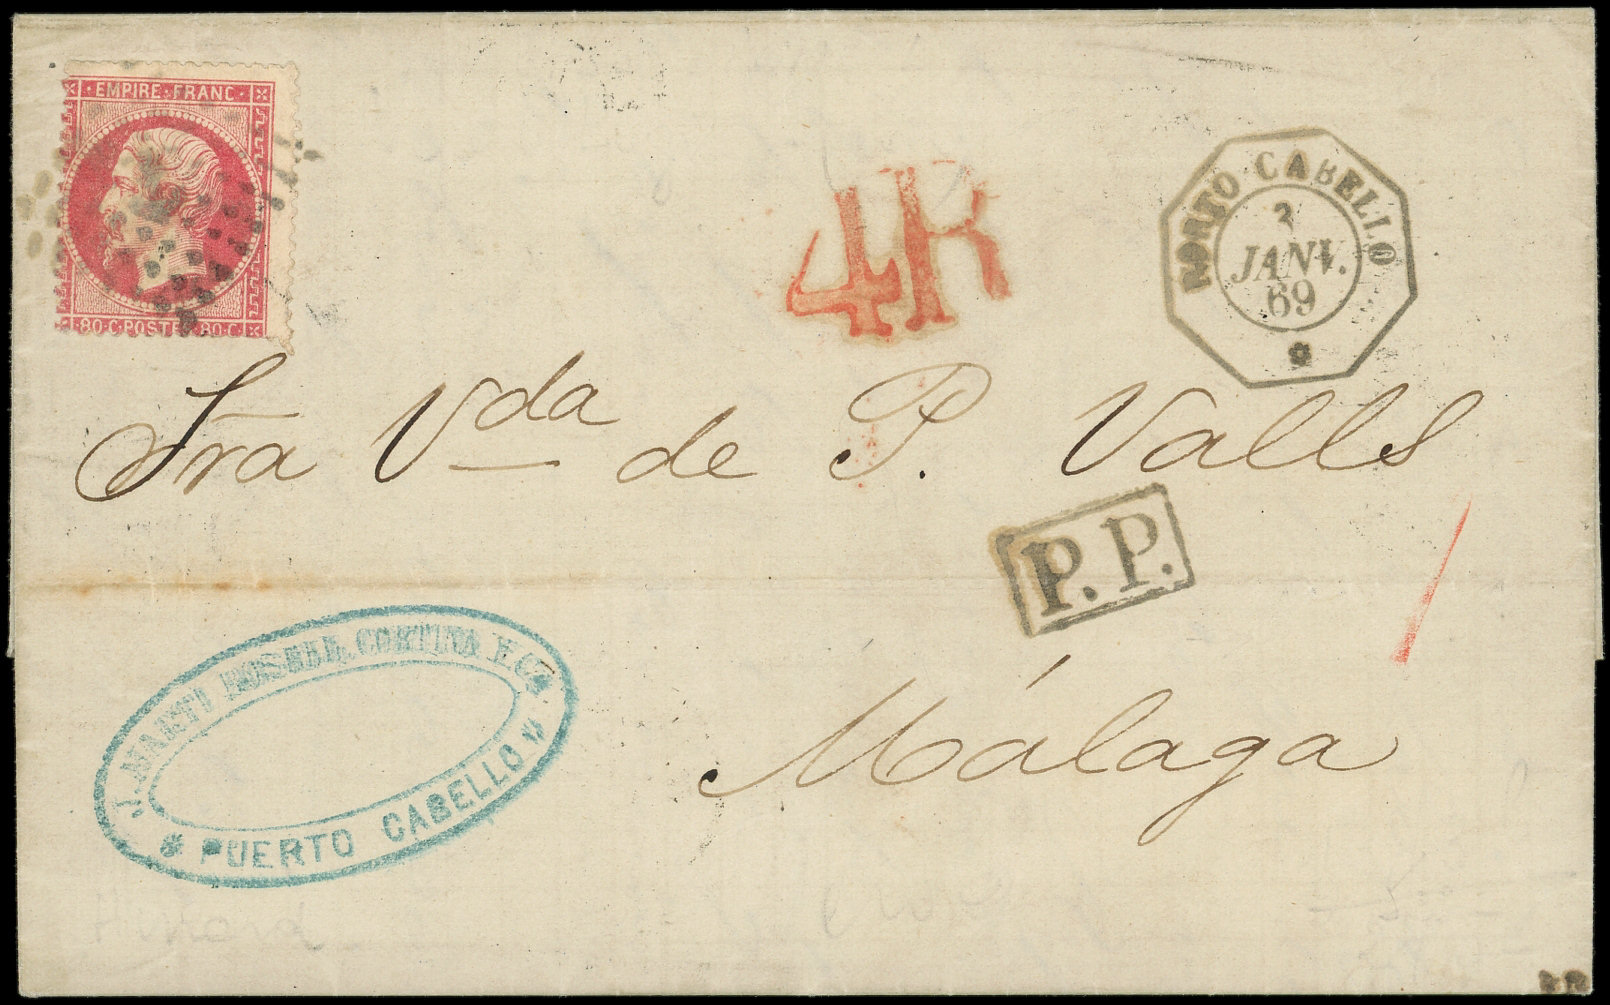 EMPIRE·FRANC·
80·C·POSTES·80·C·
4R
PORTO CABELLO
2
JANV.
69
Sra Vda de P. Valls
P.P.
Málaga
J. MARTI ROSELL, CORTINA Y Ca.
PUERTO CABELLO